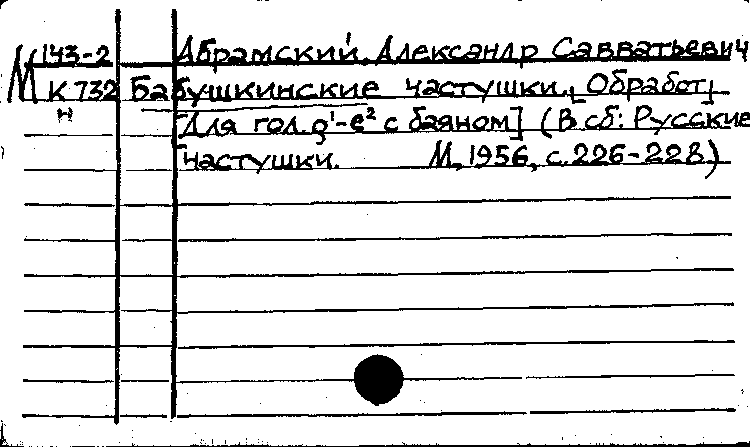 М 143-2 Абрамский, Александр Савватьевич
К 732 Бабушкинские частушки. [Обработ]
н [Для гол. g¹-e² с баяном] (В сб: Русские
частушки. М, 1956, с. 226-228)